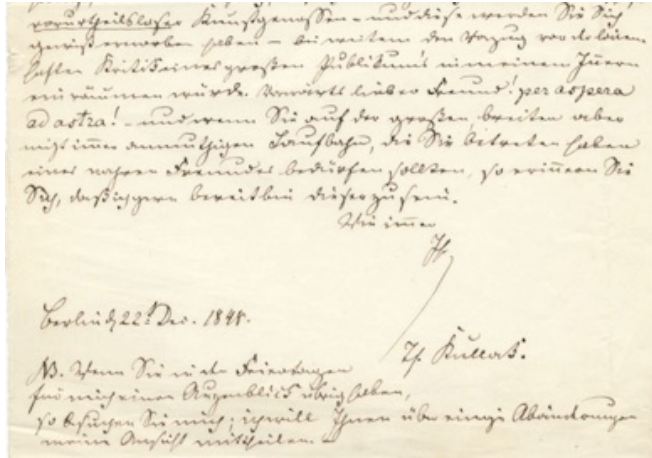 vorurtheilsloser Kunstgenossen – und diese werden Sie Sich
gewiß erworben haben – bei weitem den Vorzug vor de
haften Kritik eines großen Publikum's in meinem Innern
einräumen würde. Vorwärts lieber Freund! per aspera
ad astra! – und wenn Sie auf der großen, breiten aber
nicht immer anmuthigen Laufbahn, die Sie betreten haben
eines wahren Freundes bedürfen sollten, so erinnern Sie
Sich, daß ich gern bereit bin dieser zu sein.
Wie immer
Ihr
Berlin d 22t Dec. 1848.
Th. Kullak.
NB. Wenn Sie in den Feiertagen
für mich einen Augenblick übrig haben,
so besuchen Sie mich; ich will Ihnen über einige Abänderungen
meine Ansicht mittheilen. –